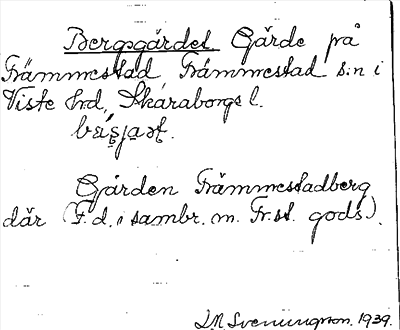 Bergsgärdet Gärde på
Främmestad Främmestad s:n i
Viste hd, Skaraborgs l.

Gården Främmestadberg
där (F.d. i sambr. m. Fr.st. gods).
1939.